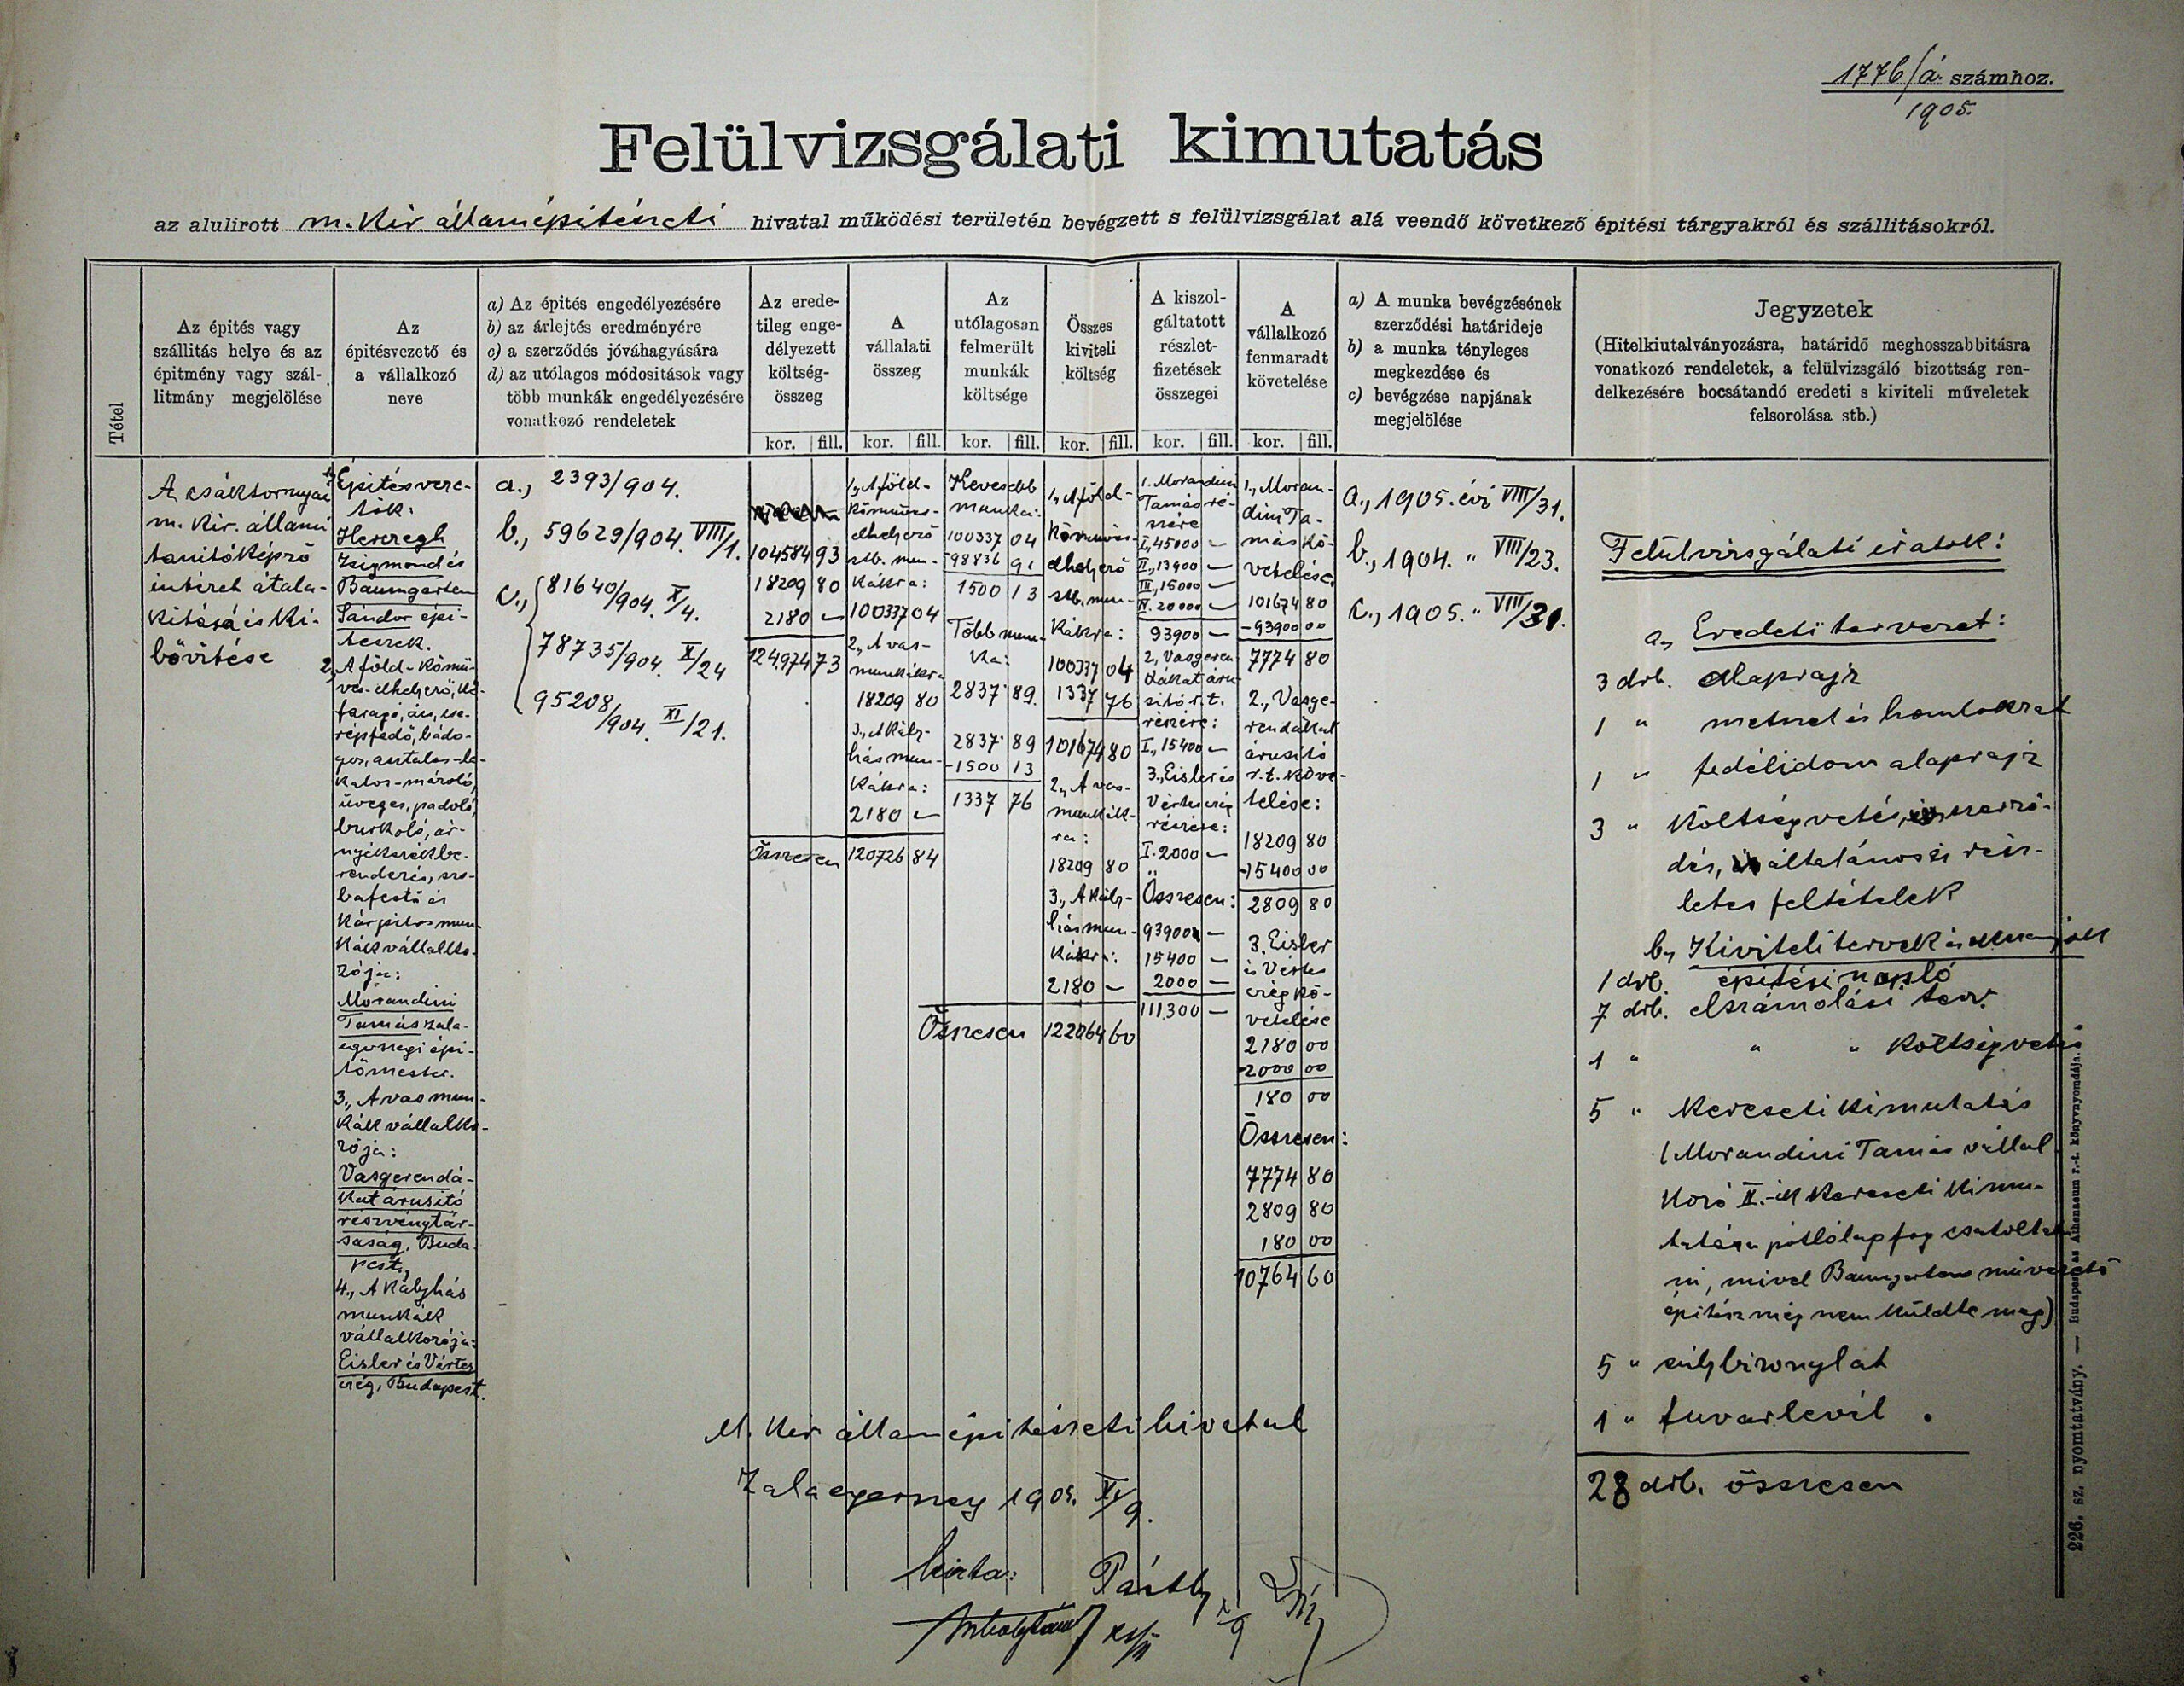 1776/á. számhoz.
1905.
Felülvizsgálati kimutatás
az alulirott m. kir. államépitészeti hivatal működési területén bevégzett s felülvizsgálat alá veendő következő épitési tárgyakról és szállitásokról.
Tétel
Az épités vagy
szállitás helye és az
épitmény vagy szál-
litmány megjelölése
Az
épitésvezető és
a vállalkozó
neve
a) Az épités engedélyezésére
b) az árlejtés eredményére
c) a szerződés jóváhagyására
d) az utólagos módositások vagy
több munkák engedélyezésére
vonatkozó rendeletek
Az erede-
tileg enge-
délyezett
költség-
összeg
kor. fill.
A
vállalati
összeg
kor. fill.
Az
utólagosan
felmerült
munkák
költsége
kor. fill.
Összes
kiviteli
költség
kor. fill.
A kiszol-
gáltatott
részlet-
fizetések
összegei
kor. fill.
A
vállalkozó
fenmaradt
követelése
kor. fill.
a) A munka bevégzésének
szerződési határideje
b) a munka tényleges
megkezdése és
c) bevégzése napjának
megjelölése
Jegyzetek
(Hitelkiutalványozásra, határidő meghosszabbitásra
vonatkozó rendeletek, a felülvizsgáló bizottság ren-
delkezésére bocsátandó eredeti s kiviteli műveletek
felsorolása stb.)
A csáktornyai
m. kir. állami
tanitóképző
intézet átala-
kitása és ki-
bővitése
1, Épitésveze-
tők:
Hereregh
Zsigmond és
Baumgarten
Sándor épi-
tészek.
2, A föld-kőmü-
ves-elhelyező, kő-
faragó, ács, cse-
répfedő, bádo-
gos, asztalos-la-
katos-mázoló,
üveges, padoló,
burkoló, ár-
nyékszékbe-
rendezés, szo-
bafestő és
kárpitos mun-
kák vállalko-
zója:
Morandini
Tamás zala-
egerszegi épi-
tőmester.
3., A vas mun-
kák vállalko-
zója:
Vasgerendá-
kat árusitó
részvénytár-
saság, Buda-
pest,
4., A kályhás
munkák
vállalkozója:
Eisler és Vértes
cég, Budapest.
a., 2393/904.
b., 59629/904. VIII/1.
c., 81640/904. X/4.
78735/904. X/24
95208/904. XI/21.
104584 93
18209 80
2180 –
124974 73
1, A föld-
kőmüves-
elhelyező
stb. mun-
kákra:
100337 04
2., A vas-
munkákra
18209 80
3., A kály-
hás mun-
kákra:
2180 –
Összesen 120726 84
Kevesebb
munka:
100337 04
- 98836 91
1500 13
Több mun-
ka:
2837 89.
2837 89
-1500 13
1337 76
1, A föld-
kőmüves-
elhelyező
stb. mun-
kákra:
100337 04
1337 76
101674 80
2., A vas-
munkák-
ra:
18209 80
3., A kály-
hás mun-
kákra:
2180 –
Összesen 122064 60
1. Morandini
Tamás ré-
szére
I., 45000 –
II., 13900 –
III., 15000 –
IV. 20000 –
93900 –
2., Vasgeren-
dákat áru-
sitó r.t.
részére:
I., 15400 –
3., Eisler és
Vértes cég
részére:
I. 2000 –
Összesen:
93900 –
15400 –
2000 –
111300 –
1., Moran-
dini Ta-
más kö-
vetelése
101674 80
- 93900 00
7774 80
2., Vasge-
rendákat
árusitó
r.t. köve-
telése:
18209 80
-15400 00
2809 80
3. Eisler
és Vértes
cég kö-
vetelése
2180 00
-2000 00
180 00
Összesen:
7774 80
2809 80
180 00
10764 60
a., 1905. évi VIII/31.
b., 1904. " VIII/23.
c., 1905. " VIII/31.
Felülvizsgálati iratok:
a., Eredeti tervezet:
3 drb. alaprajz
1 " metszet és homlokzat
1 " fedélidom alaprajz
3 " költségvetés, szerző-
dés, általános és rész-
letes feltételek
b, Kiviteli tervek és
1 drb. épitési napló
7 drb. elszámolási terv.
1 " " " költségvetés
5 " kereseti kimutatás
(Morandini Tamás vállal-
kozó II.-ik kereseti kimu-
tatása pótlólag fog csatoltat-
ni, mivel Baumgarten müvezető
épitész még nem küldte meg)
5 " sulybizonylat
1 " fuvarlevél .
28 drb. összesen
M. kir. államépitészeti hivatal
Zalaegerszeg 1905. XI/9.
226. sz. nyomtatvány. — Budapest, az Athenaeum r.-t. könyvnyomdája.